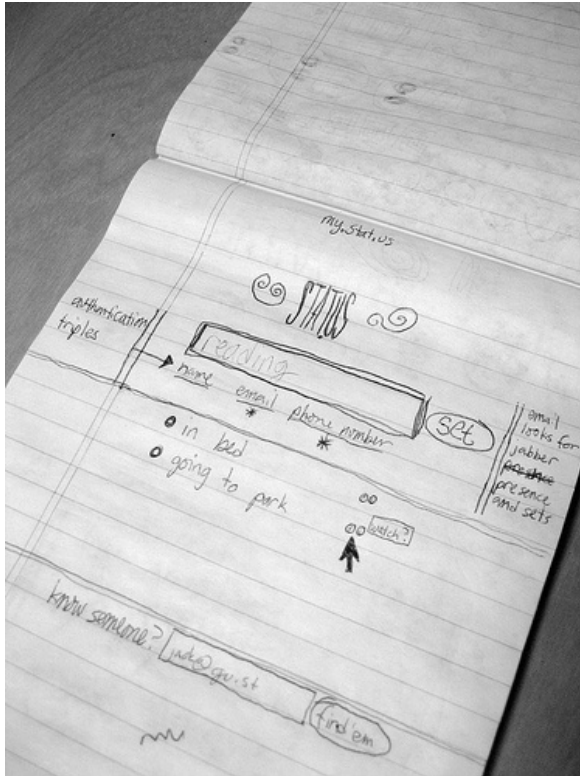 my.stat.us
STATUS
authentication
triples
reading
name email phone number
* *
set
email
looks for
jabber
presence
presence
and sets
in bed
going to park
watch?
know someone?
find'em